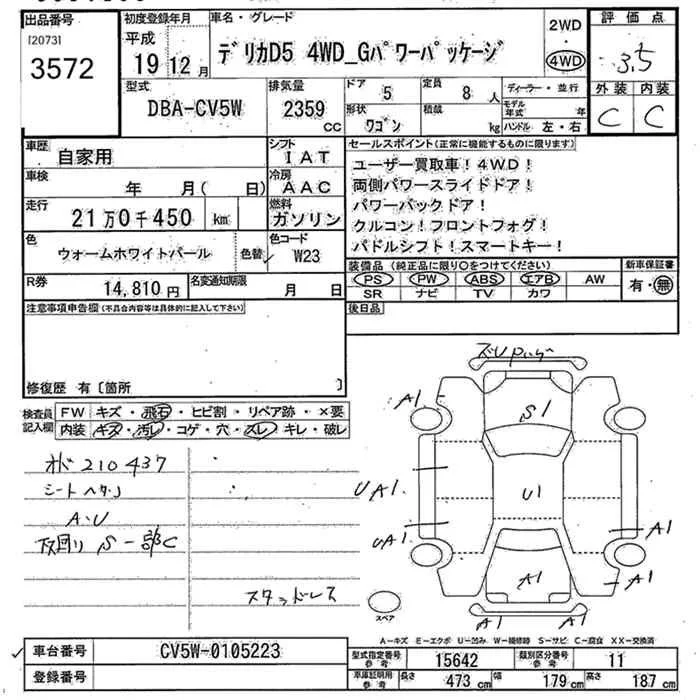 出品番号
[2073]
3572
初度登録年月
平成
19 12 月
車名・グレード
デリカD5 4WD_Gパワーパッケージ
2WD
・
4WD
評価点
3.5
外装 内装
C C
型式
DBA-CV5W
排気量
2359
cc
ドア
5
定員
8 人
形状
ワゴン
積載
kg
ディーラー・並行
モデル年式 年
ハンドル 左・右
車歴
自家用
シフト
IAT
車検
年 月( 日)
冷房
AAC
走行
21万0千450 km
燃料
ガソリン
色
ウォームホワイトパール
色替
色コード
W23
R券
14,810 円
名変通知期限
月 日
セールスポイント(正常に機能するものに限ります)
ユーザー買取車!4WD!
両側パワースライドドア!
パワーバックドア!
クルコン!フロントフォグ!
パドルシフト!スマートキー!
装備品(純正品に限り○をつけてください)
PS PW ABS エアB AW
SR ナビ TV カワ
新車保証書
有・無
後日品
注意事項申告欄(不具合内容等は具体的に記入して下さい)
修復歴 有〔箇所 〕
検査員
記入欄
FW キズ・飛石・ヒビ割・リペア跡・×要
内装 キズ・汚レ・コゲ・穴・スレ・キレ・破レ
オド210437
シートヘタリ
A・U
下回り S一部C
スタッドレス
A1
S1
UA1
U1
UA1
A1
A1
A1
A1 A1
スペア
A-キズ E-エクボ U-凹み W-補修跡 S-サビ C-腐食 XX-交換済
車台番号
CV5W-0105223
登録番号
型式指定番号
参考
15642
類別区分番号
参考
11
車庫証明用
参考
長さ 473 cm 幅 179 cm 高さ 187 cm